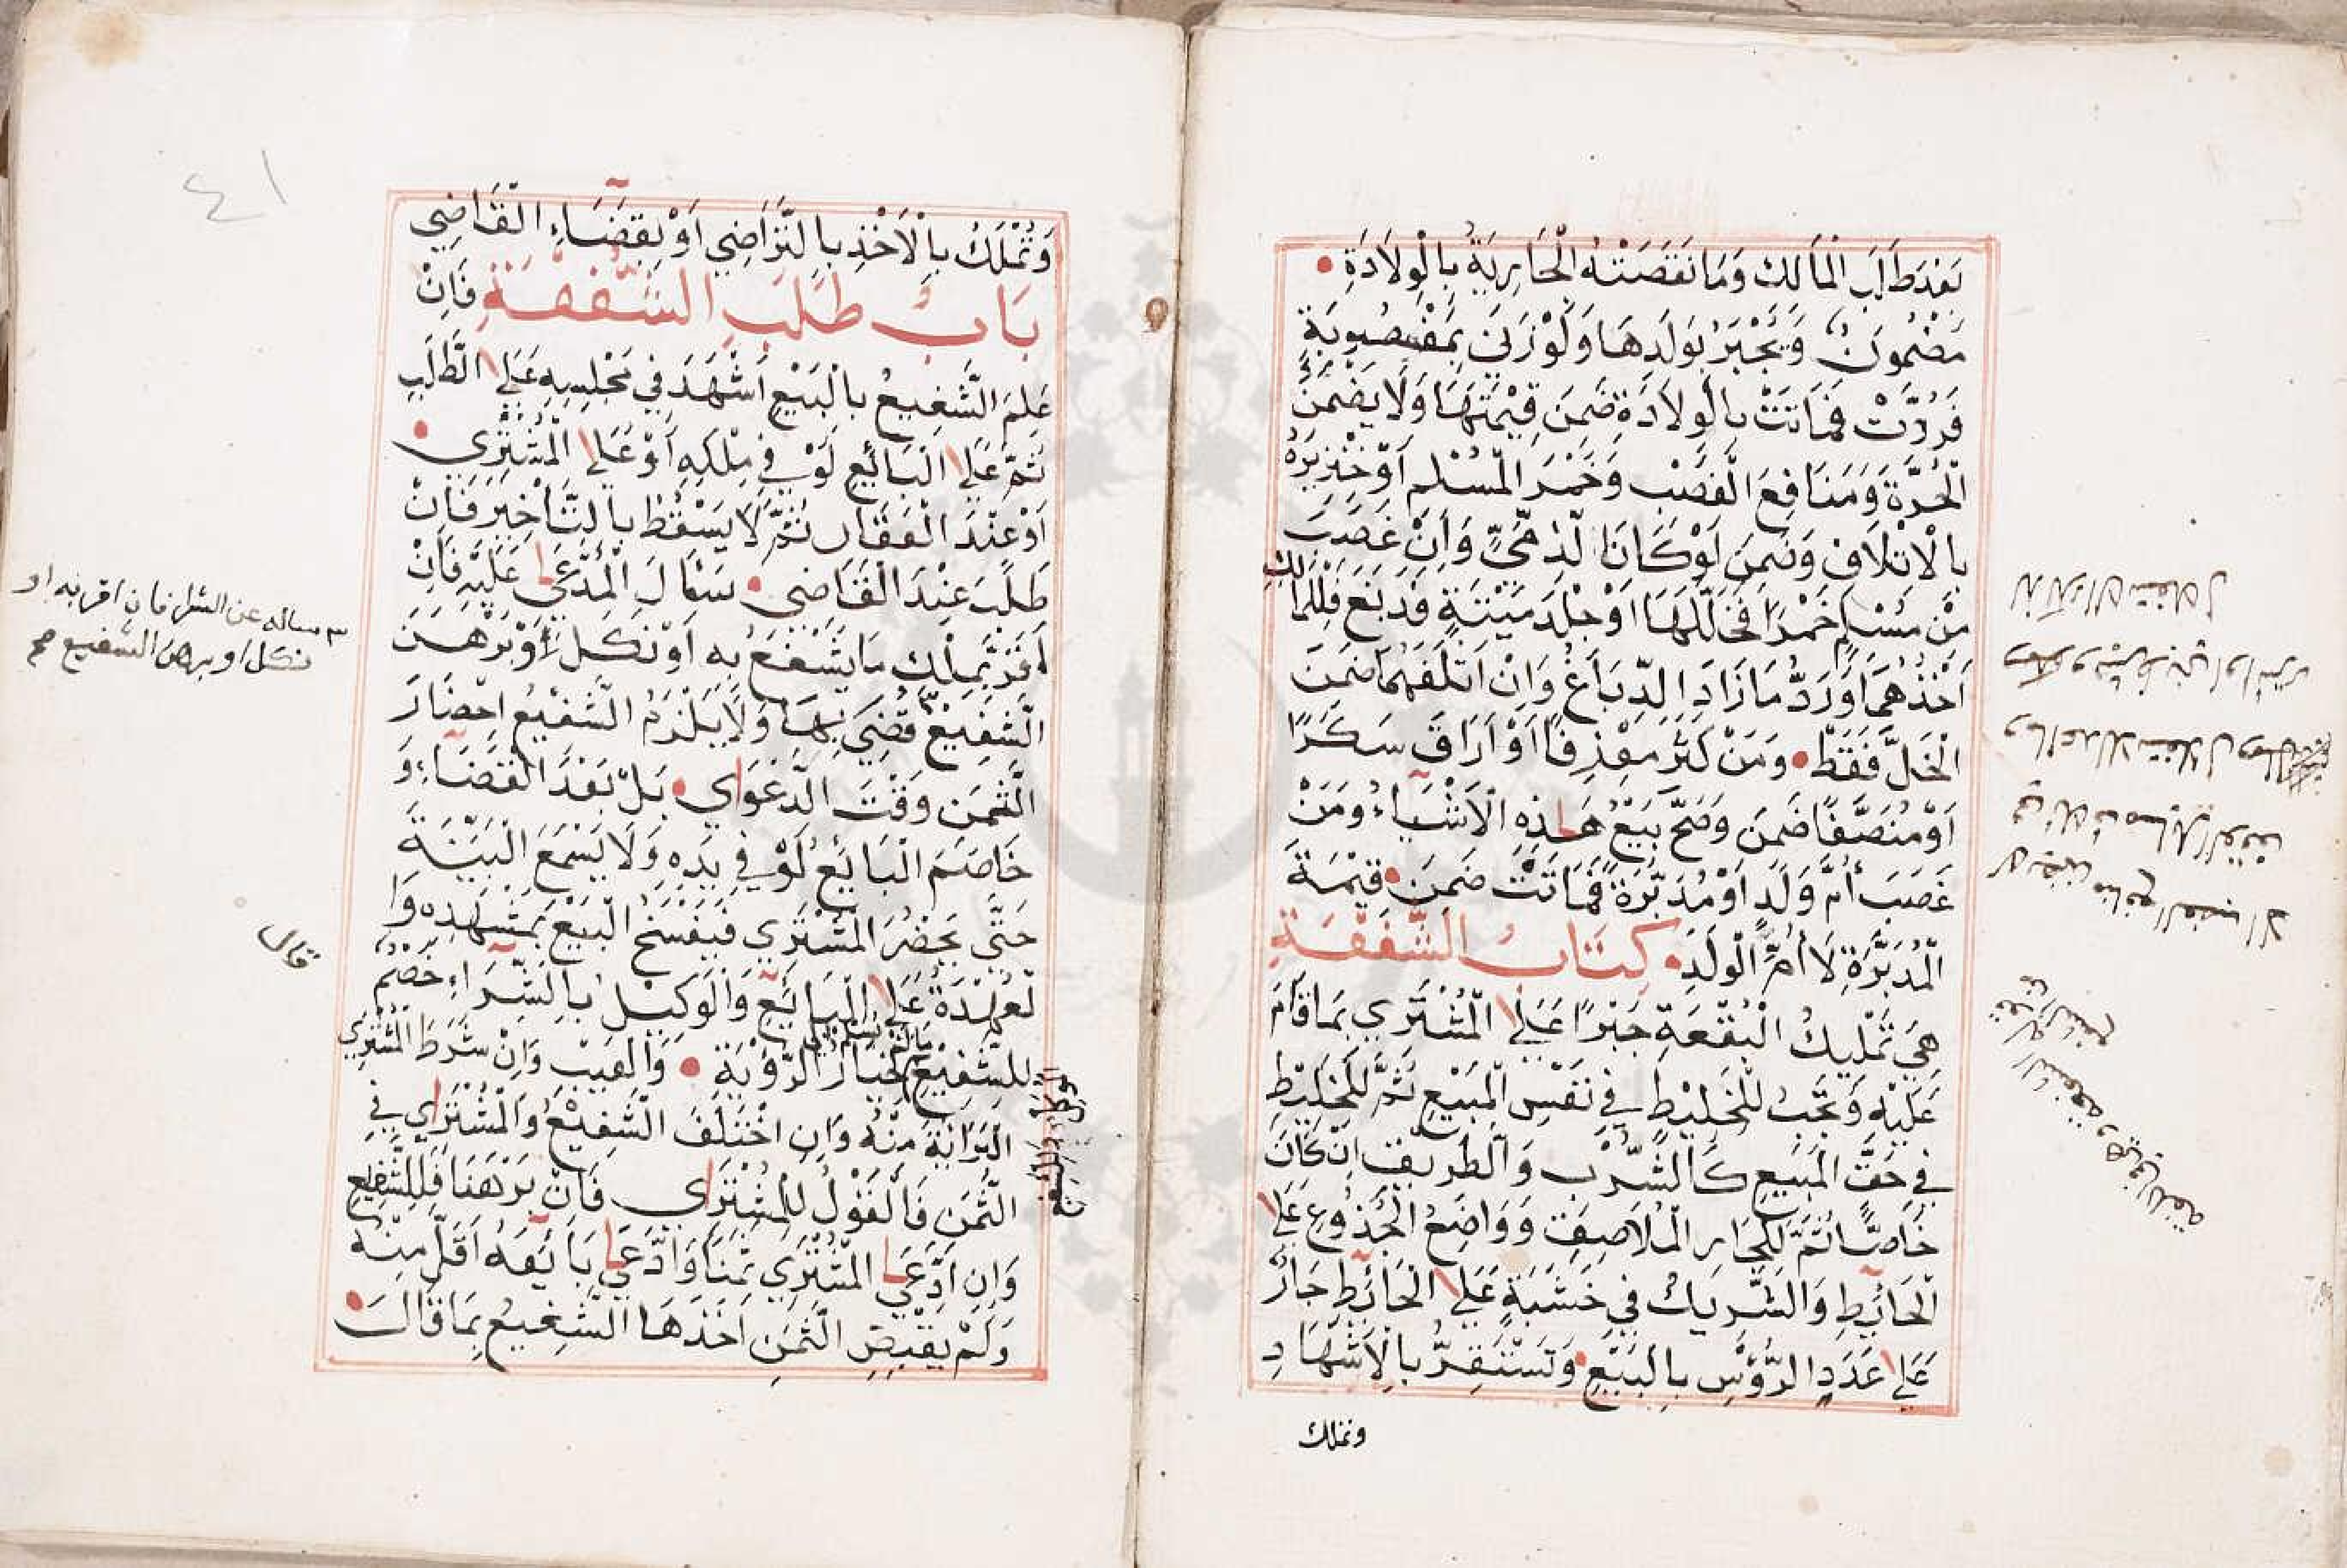 بَعْدَ طَلَبِ الْمَالِكِ وَمَا نَقَصَتْهُ الْجَارِيَةُ بِالْوِلَادَةِ
مَضْمُونٌ وَيُجْبَرُ بِوَلَدِهَا وَلَوْ زَنَى بِمَغْصُوبَةٍ
فَرُدَّتْ فَمَاتَتْ بِالْوِلَادَةِ ضَمِنَ قِيْمَتَهَا وَلَا يَضْمَنُ
الْحُرَّةَ وَمَنَافِعَ الْغَصْبِ وَخَمْرَ الْمُسْلِمِ أَوْ خِنْزِيرَهُ
بِالْإِتْلَافِ وَضَمِنَ لَوْ كَانَا لِذِمِّيٍّ وَإِنْ غَصَبَ
مِنْ مُسْلِمٍ خَمْرًا فَخَلَّلَهَا أَوْ جِلْدَ مَيْتَةٍ فَدَبَغَ فَلِلْمَالِكِ
أَخْذُهُمَا وَرَدُّ مَا زَادَ الدِّبَاغُ وَإِنْ أَتْلَفَهُمَا ضَمِنَ
الْخَلَّ فَقَطْ وَمَنْ كَسَرَ مِعْزَفًا أَوْ أَرَاقَ سَكَرًا
أَوْ مُنَصَّفًا ضَمِنَ وَصَحَّ بَيْعُ هَذِهِ الْأَشْيَاءِ وَمَنْ
غَصَبَ أُمَّ وَلَدٍ أَوْ مُدَبَّرَةً فَمَاتَتْ ضَمِنَ قِيْمَةَ
الْمُدَبَّرَةِ لَا أُمِّ الْوَلَدِ كِتَابُ الشُّفْعَةِ
هِيَ تَمْلِيكُ الْبُقْعَةِ جَبْرًا عَلَى الْمُشْتَرِي بِمَا قَامَ
عَلَيْهِ وَتَجِبُ لِلْخَلِيْطِ فِي نَفْسِ الْمَبِيْعِ ثُمَّ لِلْخَلِيْطِ
فِي حَقِّ الْمَبِيْعِ كَالشِّرْبِ وَالطَّرِيقِ إِنْ كَانَ
خَاصًّا ثُمَّ لِلْجَارِ الْمُلَاصِقِ وَوَاضِعُ الْجُذُوعِ عَلَى
الْحَائِطِ وَالشَّرِيكُ فِي خَشَبَةٍ عَلَى الْحَائِطِ جَارٌ
عَلَى عَدَدِ الرُّؤُسِ بِالْبَيْعِ وَتَسْتَقِرُّ بِالْإِشْهَادِ
وتملك
٤١
وَتُمْلَكُ بِالْأَخْذِ بِالتَّرَاضِي أَوْ بِقَضَاءِ الْقَاضِي
بَابُ طَلَبِ الشُّفْعَةِ فَإِنْ
عَلِمَ الشَّفِيعُ بِالْبَيْعِ أَشْهَدَ فِي مَجْلِسِهِ عَلَى الطَّلَبِ
ثُمَّ عَلَى الْبَائِعِ لَوْ فِي مِلْكِهِ أَوْ عَلَى الْمُشْتَرِي
أَوْ عِنْدَ الْعَقَارِ ثُمَّ لَا يَسْقُطُ بِالتَّأْخِيرِ فَإِنْ
طَلَبَ عِنْدَ الْقَاضِي سَأَلَ الْمُدَّعَى عَلَيْهِ فَإِنْ
أَقَرَّ بِمِلْكِ مَا يَشْفَعُ بِهِ أَوْ نَكَلَ أَوْ بَرْهَنَ
الشَّفِيْعُ قُضِيَ بِهَا وَلَا يَلْزَمُ الشَّفِيْعَ إِحْضَارَ
الثَّمَنِ وَقْتَ الدَّعْوَاي بَلْ بَعْدَ الْقَضَاءِ وَ
خَاصَمَ الْبَائِعُ لَوْ فِي يَدِهِ وَلَا يَسْمَعُ الْبَيِّنَةَ
حَتَّى يَحْضُرَ الْمُشْتَرِي فَيَفْسَخُ الْبَيْعَ بِمَشْهَدِهِ وَا
لْعُهْدَةُ عَلَى الْبَائِعِ وَالْوَكِيْلُ بِالشِّرَاءِ خَصْمٌ
لِلشَّفِيْعِ مَا لَمْ يُسَلِّمْ خِيَارُ الرُّؤْيَةِ وَالْعَيْبِ وَإِنْ شَرَطَ الْمُشْتَرِي
الْبَرَاءَةَ مِنْهُ وَإِنِ اخْتَلَفَ الشَّفِيْعُ وَالْمُشْتَرِي فِي
الثَّمَنِ فَالْقَوْلُ لِلْمُشْتَرِي فَإِنْ بَرْهَنَا فَلِلشَّفِيْعِ
وَإِنِ ادَّعَى الْمُشْتَرِي ثَمَنًا وَادَّعَى بَائِعُهُ أَقَلَّ مِنْهُ
وَلَمْ يَقْبِضِ الثَّمَنَ أَخَذَهَا الشَّفِيعُ بِمَا قَالَ
سأله عن الشرا فان اقر به او
نكل او برهن الشفيع صح
قال